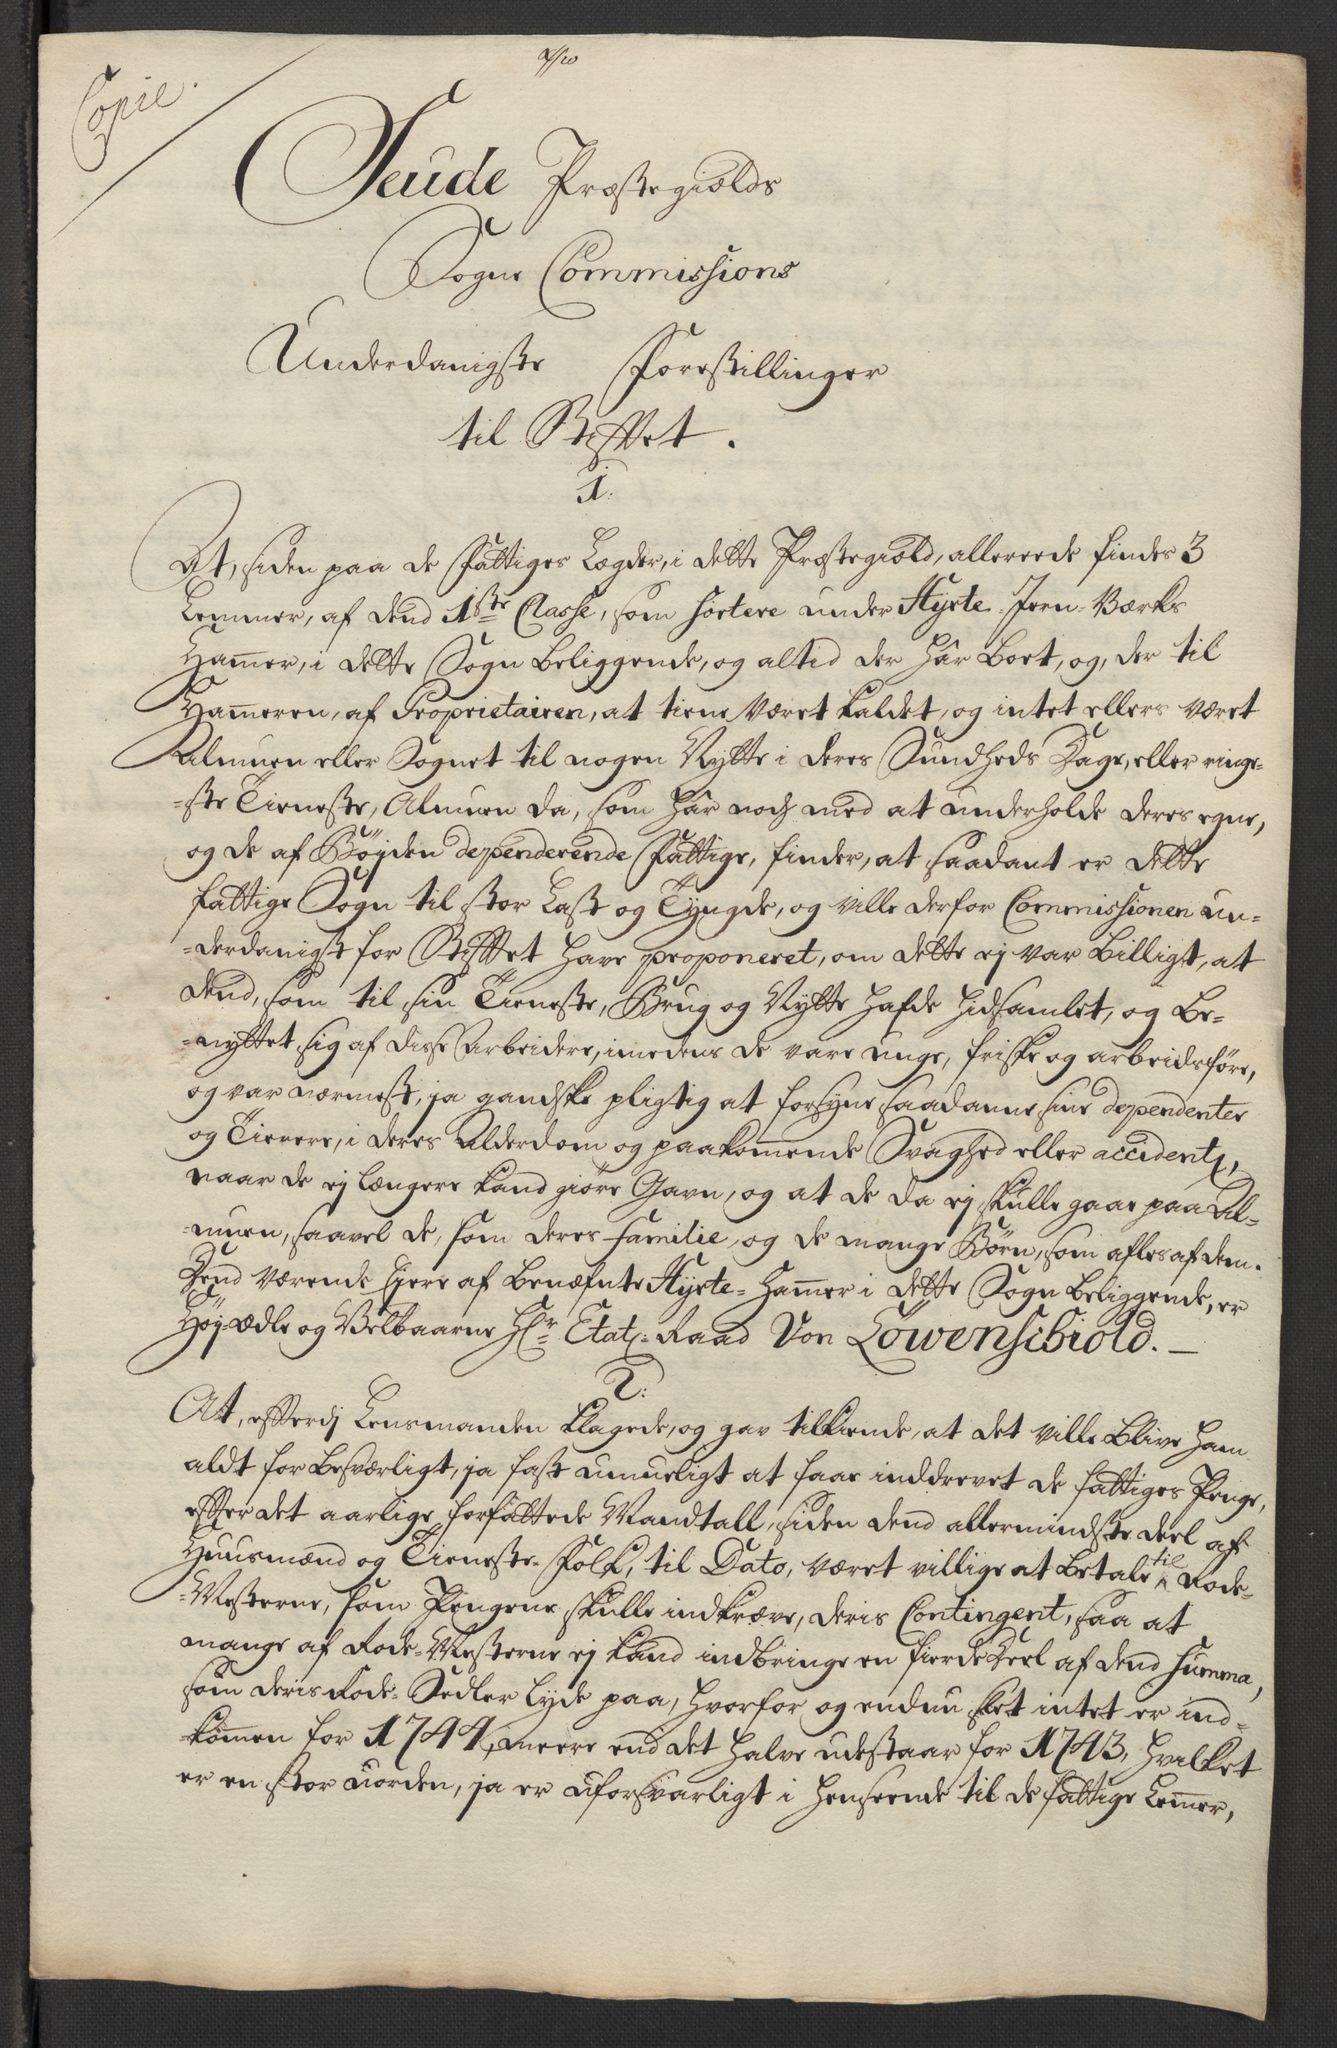 Copie.
Seude Præstegiælds
Sogne Commissions
Underdanigste Forestillinger
til Stiftet.
1.
At, siden paa de Fattiges Lægder, i dette Præstegiæld, allereede findes 3
Lemmer, af dend 1ste Classe, som sortere under Hyrte-Jern-Værks
Ham̅er, i dette Sogn beliggende, og altid der hâr boet, og, der til
Ham̅eren, af Proprietairen, at tiene været kaldet, og intet ellers været
Almuen eller Sognet til nogen Nytte i deres Sundheds Dage, eller ringe-
-ste Tieneste, Almuen da, som hâr nock med at underholde deres egne,
og de af Bøjden dependerende Fattige, finder, at saadant er dette
fattige Sogn til stor Last og Tyngde, og ville derfor Commissionen un-
-derdanigst for Stiftet have proponeret, om dette ej var billigt, at
dend, som til sin Tieneste, Brug og Nytte hafde hidsamlet, og be-
-nyttet sig af disse Arbeidere, imedens de vare unge, friske og arbeidsføre,
og var nærmest, ja gandske pligtig at forsyne saadanne sine dependenter
og Tienere, i deres Alderdom og paakom̅ende Svaghed eller accidentz,
naar de ej længere kand giøre Gavn, og at de da ej skulle gaae paa Al-
-muen, saavel de, som deres Familie, og de mange Börn, som afles af dem.
Dend værende Ejere af benæfnte Hyrte-Ham̅er i dette Sogn beliggende, er
Höj-ædle og Velbaarne Hr Etatz-Raad Von Löwenschiold. —
2.
At, efterdj Lensmanden klagede, og gav tilkiende, at det ville blive ham
aldt for besværligt, ja fast umueligt at faae inddrevet de fattiges Penge,
efter det aarlige forfattede Mandtall, siden dend allermindste deel af
Huusmænd og Tieneste-Folk, til Dato, været villige at betale til Rode-
-Mesterne, som Pengene skulle indkræve, deris Contingent, saa at
mange af Rode-Mesterne ej kand indbringe en fierde Deel af dend summa,
som deris Rode-Sedler lyde paa, hvorfor og endnu slet intet er ind-
-kom̅en for 1744, meere end det halve udestaar for 1743, hvilket
er en stor uorden, ja er uforsvarligt i henseende til de fattige Lem̅er,